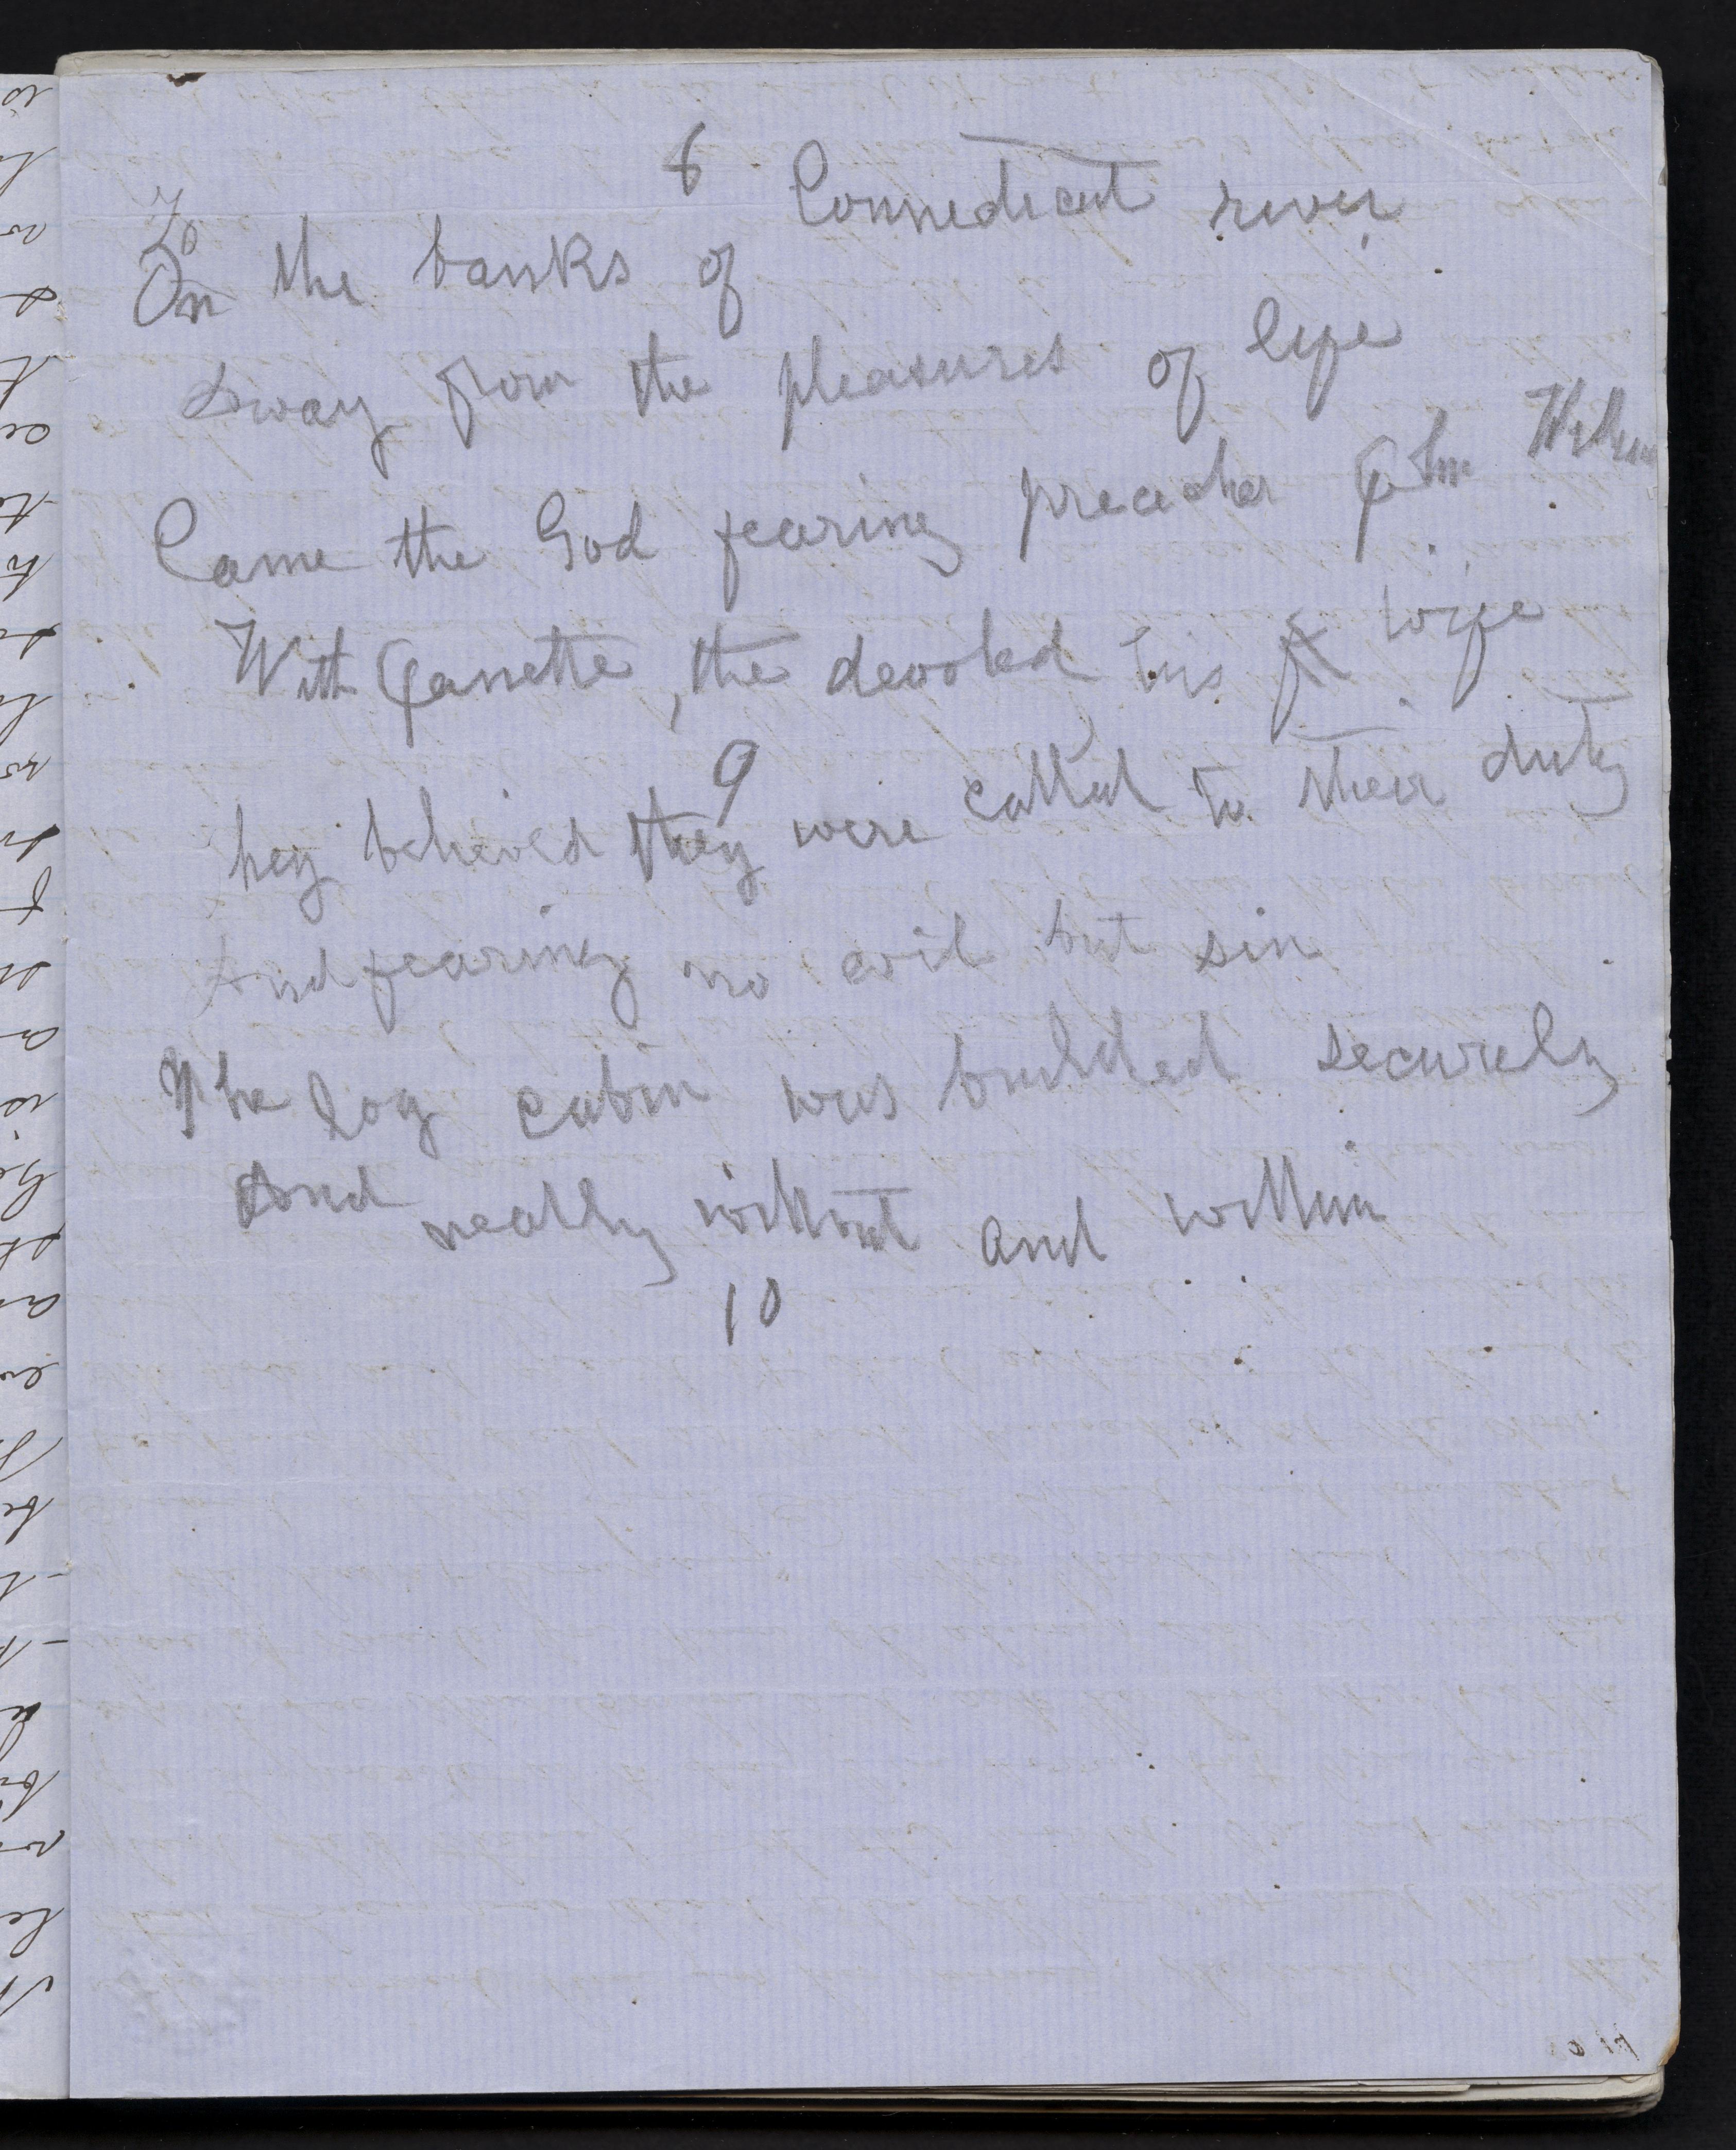 8
To
On the banks of Connecticut river
Away from the pleasures of life
Came the God fearing preacher John
With Jannette, the devoted his wife
9
hey believed they were called to their duty
And fearing no evil but sin
The log cabin was builded securely
And neatly without and within
10